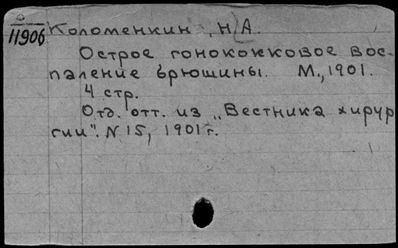 11906
Коломенкин, Н. А.
Острое гонококковое вос-
паление брюшины. М., 1901.
4 стр.
Отд. отт. из „Вестника хирур
гии". N 15, 1901 г.